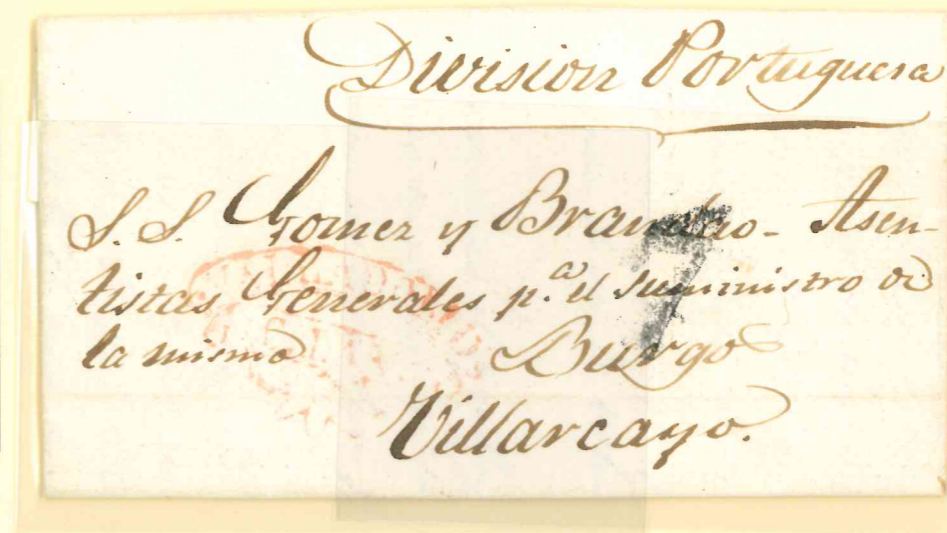 Division Portuguesa
S. S. Gomez y Brandao - Asen-
tistas Generales p.ª el suministro de
la misma Burgos
Villarcayo.
7